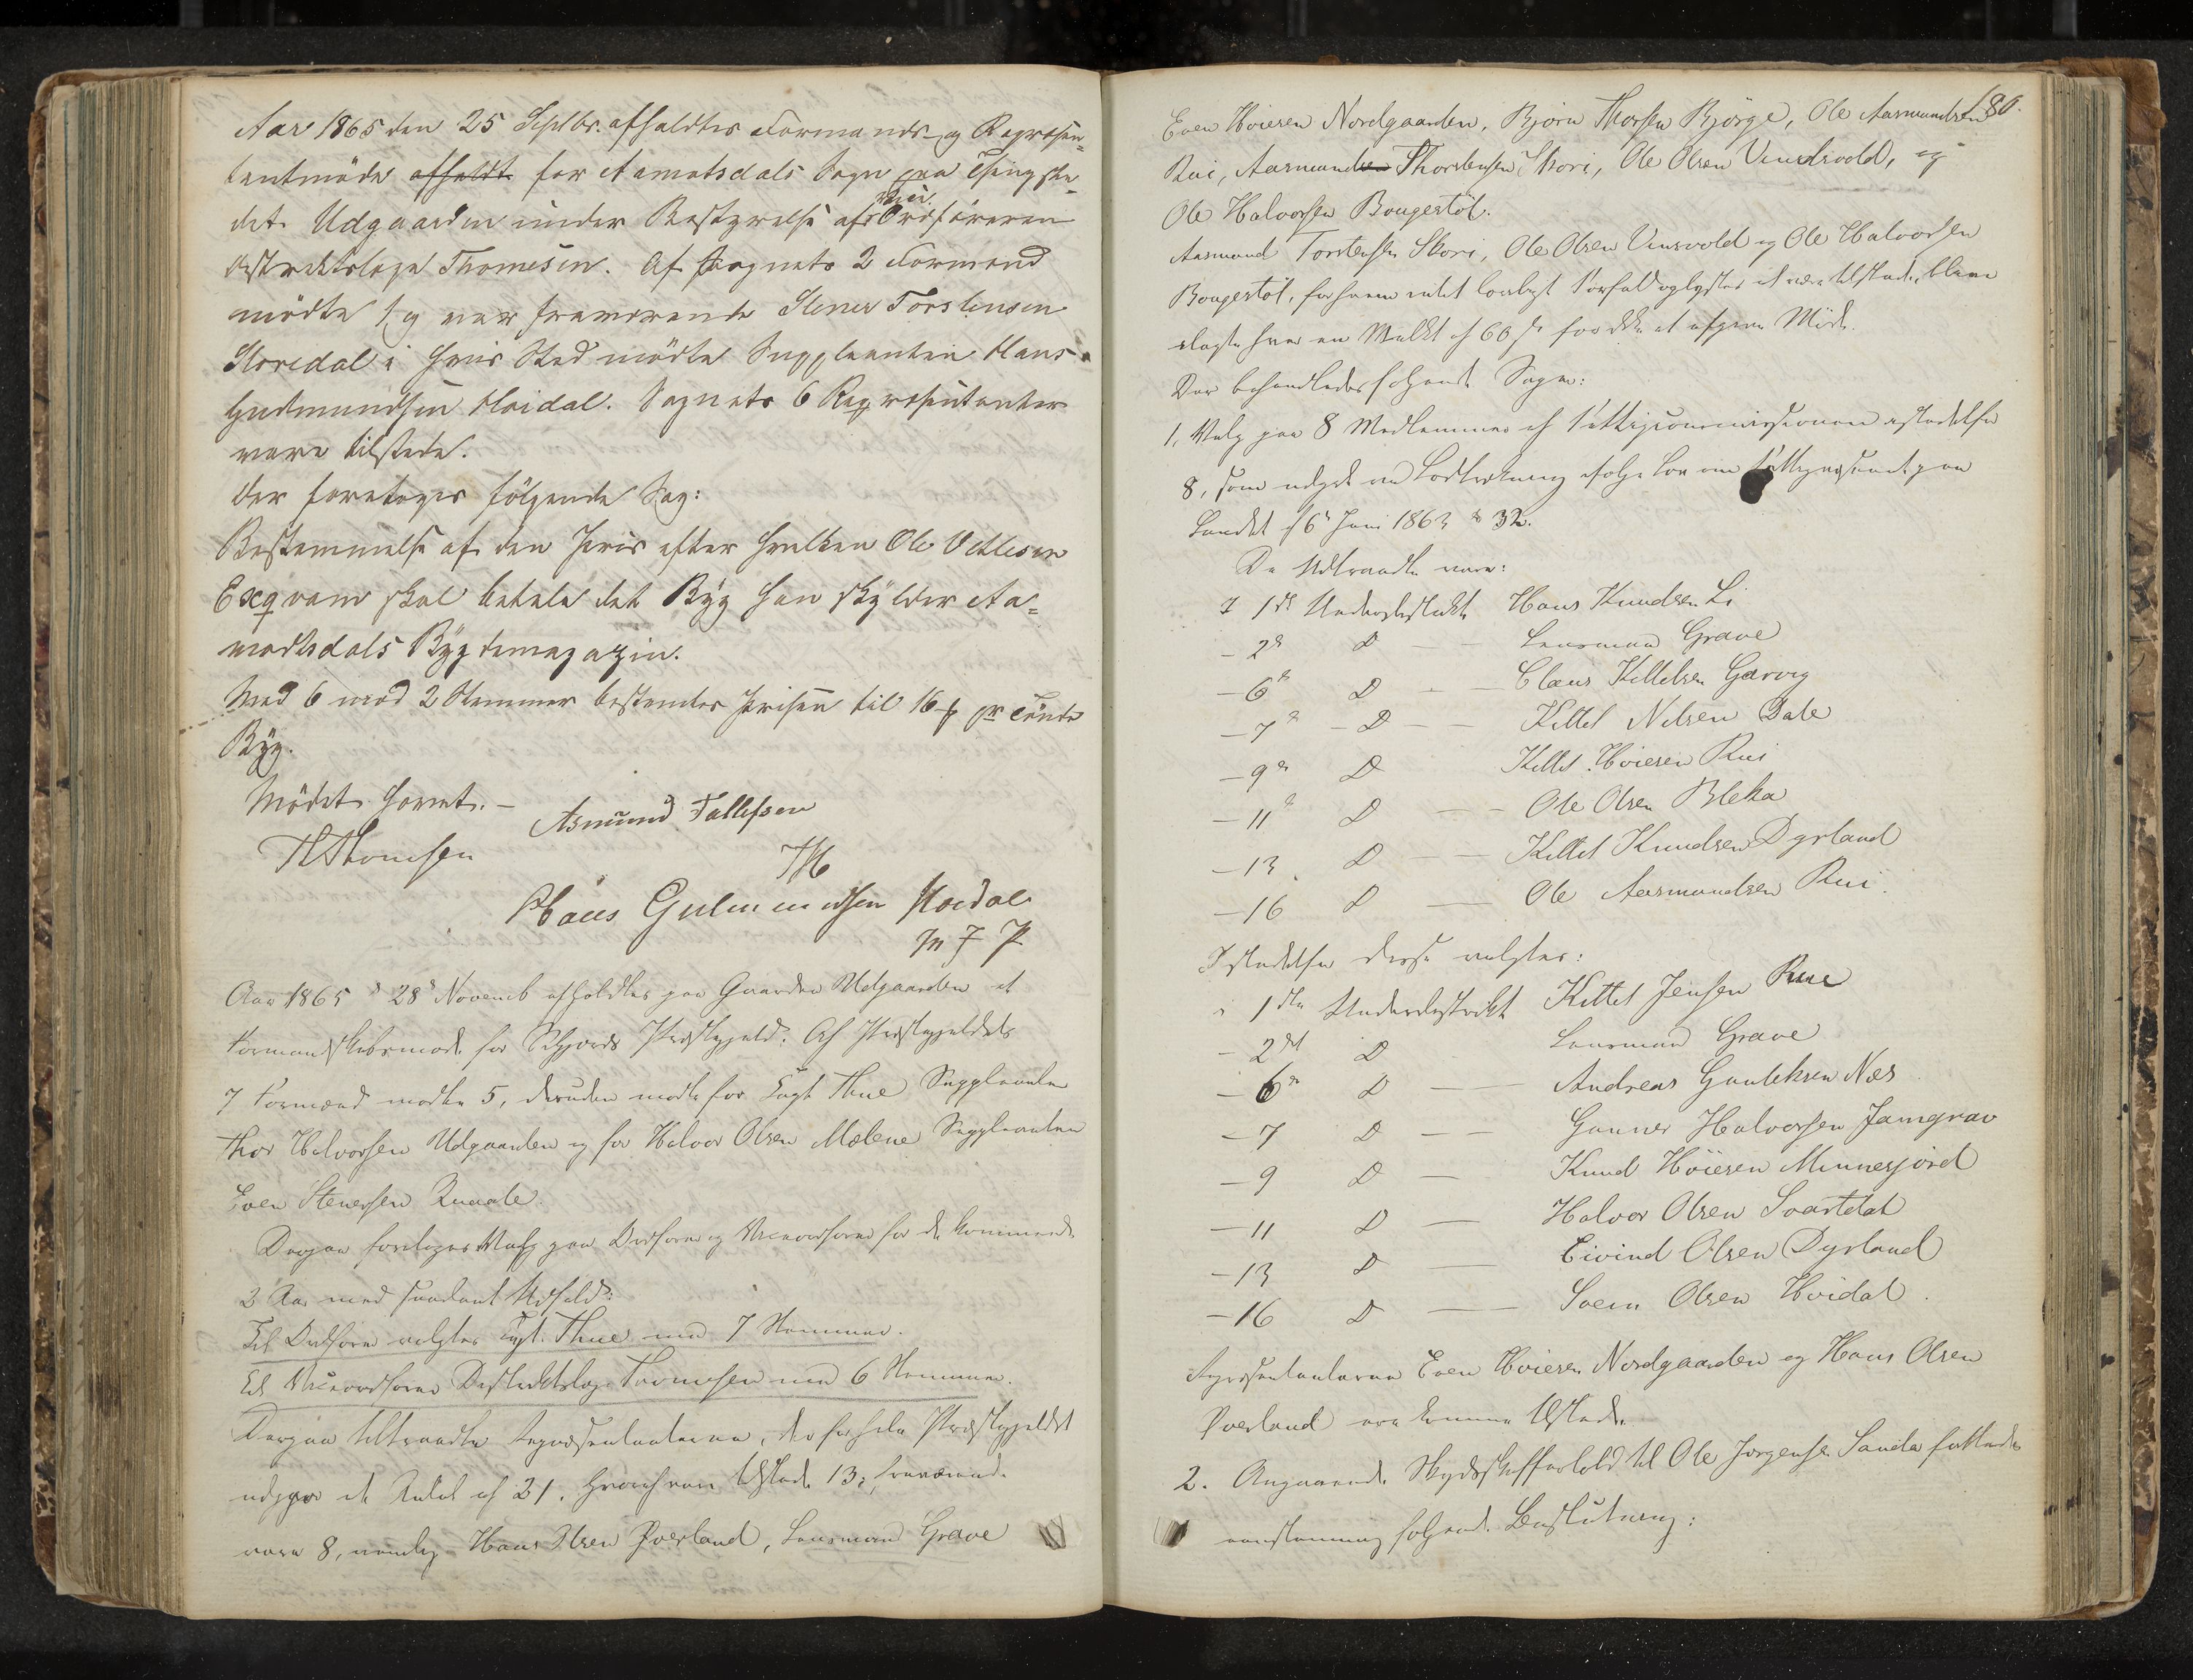 Aar 1865 den 25 Septbr. afholdtes Formands- og Repræsen-
tantmöde afholdt for Aamotsdals Sogn paa Thingste-
det Udgaarden under Bestyrelse af Vice Ordföreren
distriktslæge Thomesen. Af Sognets 2 Formænd
mödte 1 og var fraværende Stener Torstensen
Storedal i hvis Sted mödte Suppleanten Hans
Gudmundsen Hoidal. Sognets 6 Repræsentanter
vare tilstede.
Der foretoges fölgende Sag:
Bestemmelse af den Priis efter hvilken Ole Vetlesen
Exqvam skal betale det Byg han skylder Aa-
modtsdals Bygdemagazin.
Med 6 mod 2 Stemmer bestemtes Prisen til 16 ß pr Tönde
Byg.
Mödet hævet. — Asmund Tallefsen
Th Thomesen
Hans Gulmundsen Hoidal
M F P
Aar 1865 d 28d Novemb afholdtes paa Gaarden Udgaarden et
Formandskabsmøde for Seljords Præstegjeld. Af Præstegjeldets
7 Formænd mødte 5, desuden mødte for Capt Thue Suppleanten
Thor Halvorsen Udgaarden og for Halvor Olsen Mælene Suppleanten
Even Stenersen Qvaale.
Derpaa foretoges Valg paa Ordfører og Viceordfører for de kommende
2 Aar med saadant Udfald:
Til Ordfører valgtes Capt. Thue med 7 Stemmer.
Til Viceordfører Distriktslæge Thomesen med 6 Stemmer.
Derpaa tiltraadte Repræsentanterne, der for hele Præstegjeldet
udgjør et Antal af 21. Hvoraf vare tilstede 13; fraværende
vare 8, nemlig Hans Olsen Øverland, Lensmand Grave
180.
Even Hoiesen Nordgaarden, Bjørn Thorsen Bjørge, Ole Aasmundsen
Rui, Aasmund Thorstensen Skori, Ole Olsen Vindsvold, og
Ole Halvorsen Bougestøl.
Aasmund Torstensen Skori, Ole Olsen Vinsvold og Ole Halvorsen
Bougestøl, for hvem intet lovligt Forfald oplystes at være tilstede, bleve
ilagte hver en Mulkt af 60 ß for ikke at afgive Møde.
Der behandledes følgende Sager:
1, Valg paa 8 Medlemmer af Fattigcommissionen istedetfor
8, som udgik ved Lodtrækning ifølge Lov om Fattigvæsenet paa
Landet af 6te Juni 1863 § 32.
De Udtraadte vare:
I 1ste Underdistrikt Hans Knudsen Li
- 2d D — Lensmand Grave
- 6te D — Claus Kittelsen Garvig
- 7de D — Kittel Nilsen Dale
- 9de D Kittil Hoiesen Rui
- 11te D — Ole Olsen Bleka
- 13. D — Kittil Knudsen Dyrland
- 16 D — Ole Aasmundsen Rui.
Istedetfor disse valgtes:
i 1ste Underdistrikt Kittel Jensen Rue
- 2det D Lensmand Grave
- 6te D — Andreas Gunleksen Næs
- 7 D — Gunner Halvorsen Jamgrav
- 9 D — Knud Høiesen Minnesjord
- 11 D — Halvor Olsen Svartdal
- 13 D — Eivind Olsen Dyrland
- 16 D — Svein Olsen Hoidal.
Repræsentanterne Even Hoiesen Nordgaarden og Hans Olsen
Øverland ere komne tilstede.
2. Angaaende Skydsskafferhold til Ole Jørgensen Sanda fattedes
eenstemmig følgende Beslutning: